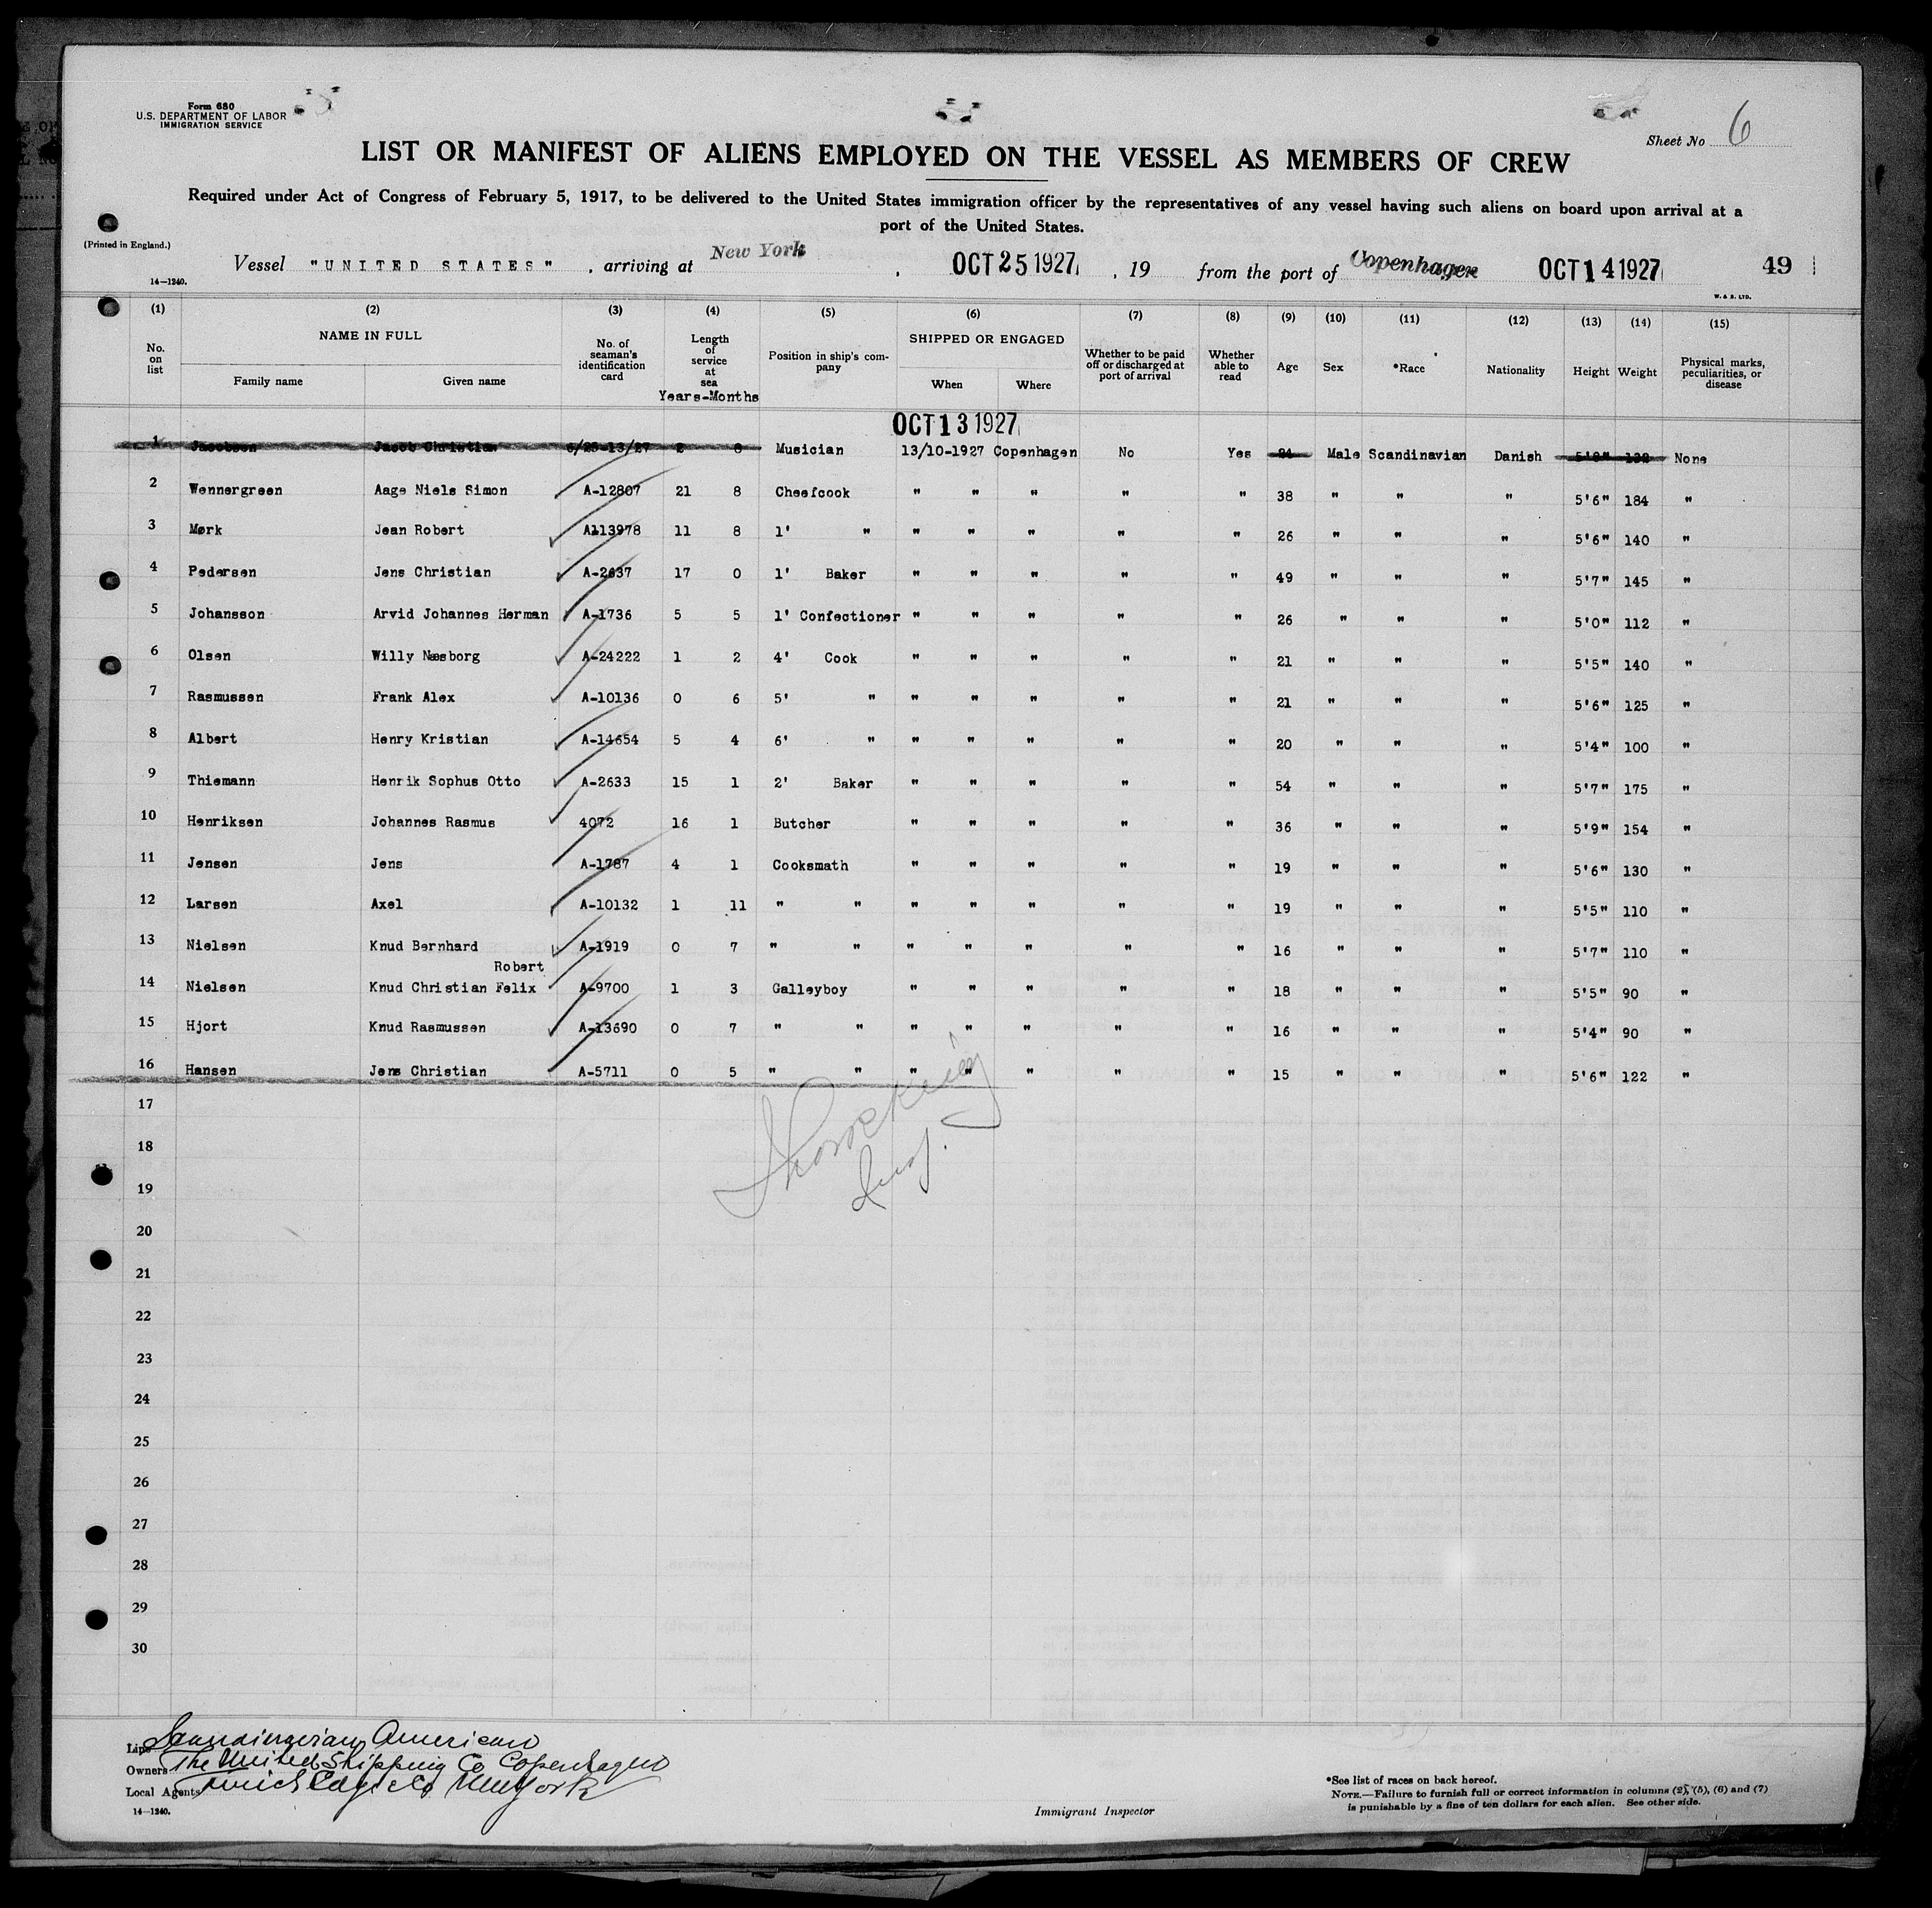 Form 680
U.S. DEPARTMENT OF LABOR
IMMIGRATION SERVICE
Sheet No 6
LIST OR MANIFEST OF ALIENS EMPLOYED ON THE VESSEL AS MEMBERS OF CREW
Required under Act of Congress of February 5, 1917, to be delivered to the United States immigration officer by the representatives of any vessel having such aliens on board upon arrival at a
port of the United States.
(Printed in England.)
Vessel "UNITED STATES" , arriving at New York , OCT 25 1927 , 19 from the port of Copenhagen OCT 14 1927 49
14—1240.
W. & S. LTD.
(1) (2) (3) (4) (5) (6) (7) (8) (9) (10) (11) (12) (13) (14) (15)
No. on list NAME IN FULL Family name Given name No. of seaman's identification card Length of service at sea Years-Months Position in ship's company SHIPPED OR ENGAGED When Where Whether to be paid off or discharged at port of arrival Whether able to read Age Sex *Race Nationality Height Weight Physical marks, peculiarities, or disease
OCT 13 1927
1 Jacobsen Jacob Christian 2 8 Musician 13/10-1927 Copenhagen No Yes Male Scandinavian Danish None
2 Wennergreen Aage Niels Simon A-12807 21 8 Cheefcook " " " " " 38 " " " 5'6" 184 "
3 Mørk Jean Robert A113978 11 8 1' " " " " " " 26 " " " 5'6" 140 "
4 Pedersen Jens Christian A-2637 17 0 1' Baker " " " " " 49 " " " 5'7" 145 "
5 Johansson Arvid Johannes Herman A-1736 5 5 1' Confectioner " " " " " 26 " " " 5'0" 112 "
6 Olsen Willy Næsborg A-24222 1 2 4' Cook " " " " " 21 " " " 5'5" 140 "
7 Rasmussen Frank Alex A-10136 0 6 5' " " " " " " 21 " " " 5'6" 125 "
8 Albert Henry Kristian A-14654 5 4 6' " " " " " " 20 " " " 5'4" 100 "
9 Thiemann Henrik Sophus Otto A-2633 15 1 2' Baker " " " " " 54 " " " 5'7" 175 "
10 Henriksen Johannes Rasmus 4072 16 1 Butcher " " " " " 36 " " " 5'9" 154 "
11 Jensen Jens A-1787 4 1 Cooksmath " " " " " 19 " " " 5'6" 130 "
12 Larsen Axel A-10132 1 11 " " " " " " " 19 " " " 5'5" 110 "
13 Nielsen Knud Bernhard A-1919 0 7 " " " " " " " 16 " " " 5'7" 110 "
Robert
14 Nielsen Knud Christian Felix A-9700 1 3 Galleyboy " " " " " 18 " " " 5'5" 90 "
15 Hjort Knud Rasmussen A-13690 0 7 " " " " " " " 16 " " " 5'4" 90 "
16 Hansen Jens Christian A-5711 0 5 " " " " " " " 15 " " " 5'6" 122 "
17
18
19
20
21
22
23
24
25
26
27
28
29
30
Line Scandinavian American
Owners The United Shipping Co Copenhagen
Local Agents New York
14—1240.
Immigrant Inspector
*See list of races on back hereof.
NOTE.—Failure to furnish full or correct information in columns (2), (5), (6) and (7)
is punishable by a fine of ten dollars for each alien. See other side.